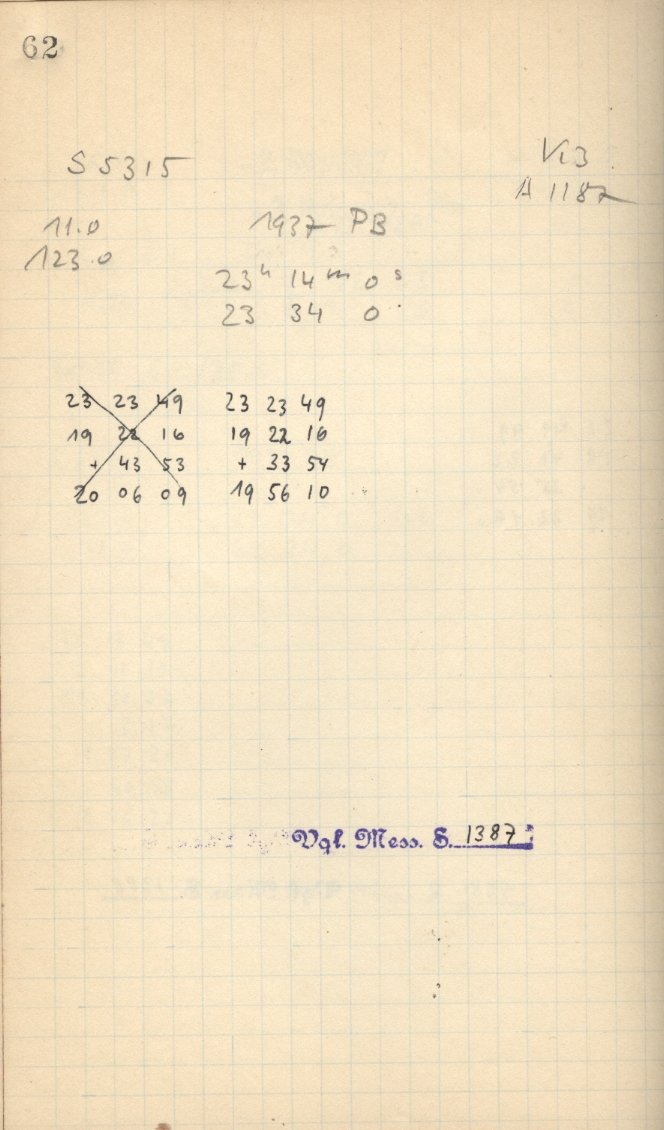 62
S 5315 Vi3
A 1187
11.0 1937 PB
123.0
23h 14m 0s
23 34 0
23 23 49 23 23 49
19 22 16 19 22 16
+ 43 53 + 33 54
20 06 09 19 56 10
Vgl. Mess. S. 1387